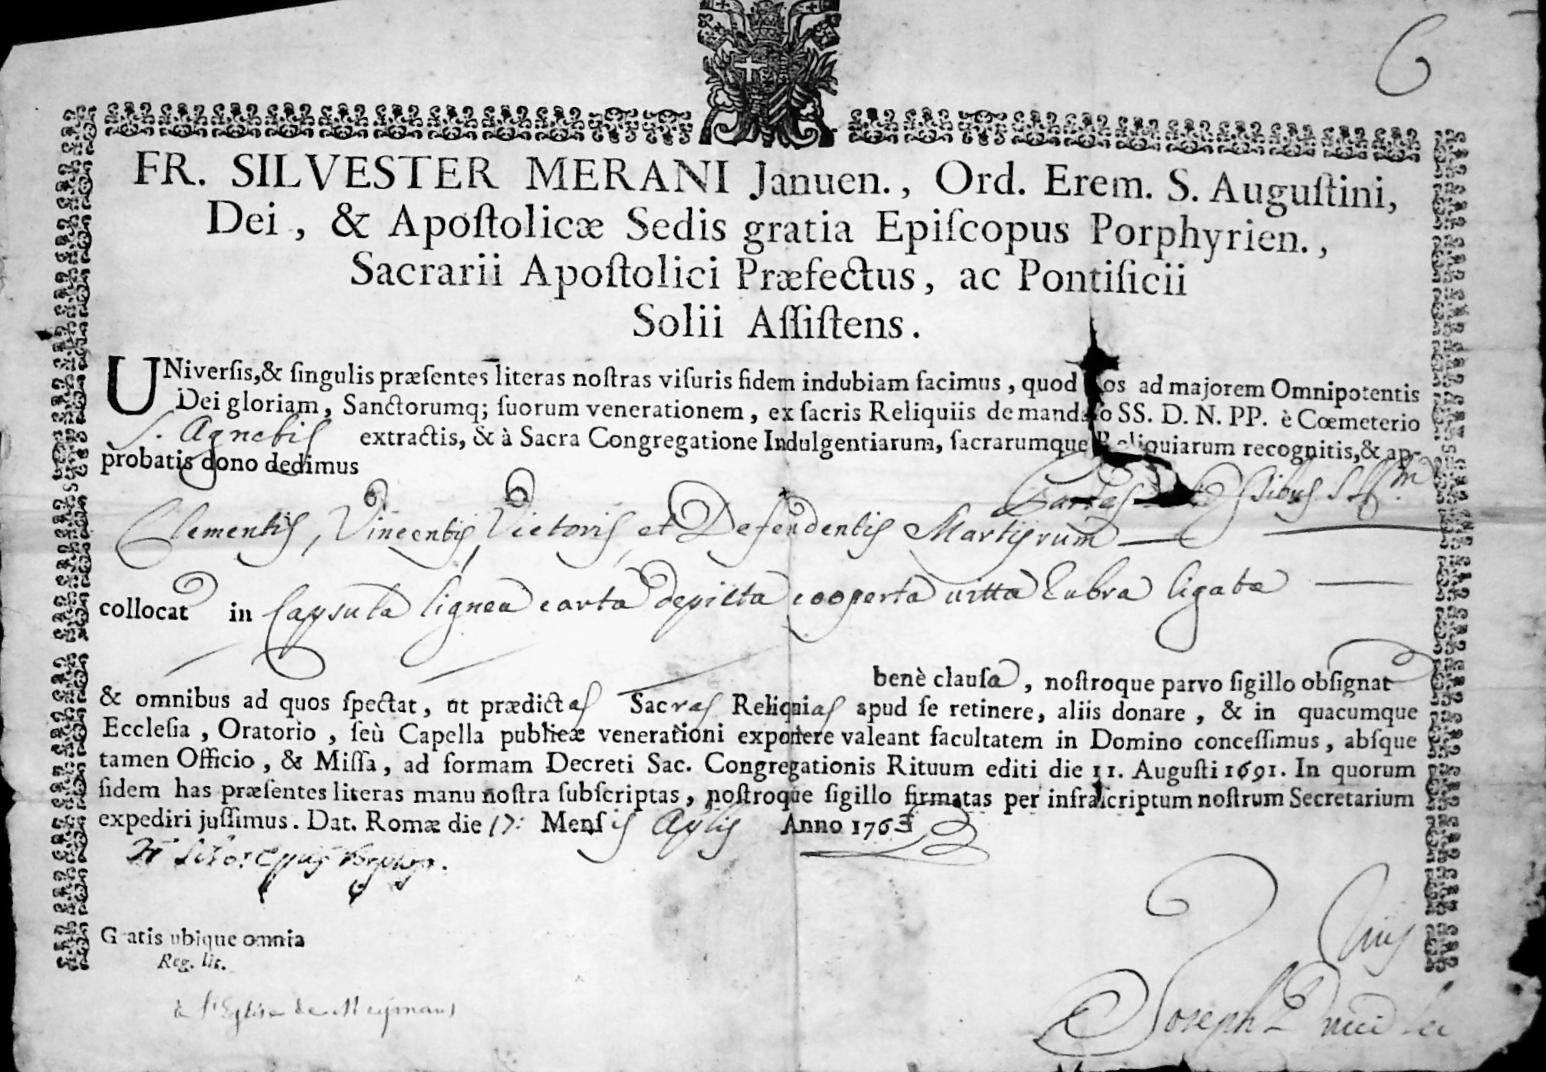 FR. SILVESTER MERANI Januen., Ord. Erem. S. Auguſtini,
Dei, & Apoſtolicæ Sedis gratia Epiſcopus Porphyrien.,
Sacrarii Apoſtolici Præfectus, ac Pontificii
Solii Aſſiſtens.
UNiverſis,& ſingulis præſentes literas noſtras viſuris fidem indubiam facimus, quod os ad majorem Omnipotentis
Dei gloriam, Sanctorumq; ſuorum venerationem, ex ſacris Reliquiis de mandato SS. D. N. PP. è Cœmeterio
S. Agnetis extractis, & à Sacra Congregatione Indulgentiarum, ſacrarumque Reliquiarum recognitis,& ap-
probatis dono dedimus
Partes
Clementis, Vincentis, Victoris, et Defendentis Martyrum
collocat in Capsula lignea carta depicta cooperta vitta rubra ligata
benè clauſa, noſtroque parvo ſigillo obſignat
& omnibus ad quos ſpectat, ut prædictas Sacras Reliquias apud ſe retinere, aliis donare, & in quacumque
Eccleſia, Oratorio, ſeù Capella publicæ venerationi exponere valeant facultatem in Domino conceſſimus, abſque
tamen Officio, & Miſſa, ad formam Decreti Sac. Congregationis Rituum editi die 11. Auguſti 1691. In quorum
fidem has præſentes literas manu noſtra ſubſcriptas, noſtroque ſigillo firmatas per infraſcriptum noſtrum Secretarium
expediri juſſimus. Dat. Romæ die 17: Menſis Aplis Anno 1763
Gratis ubique omnia
Reg. lit.
Joseph